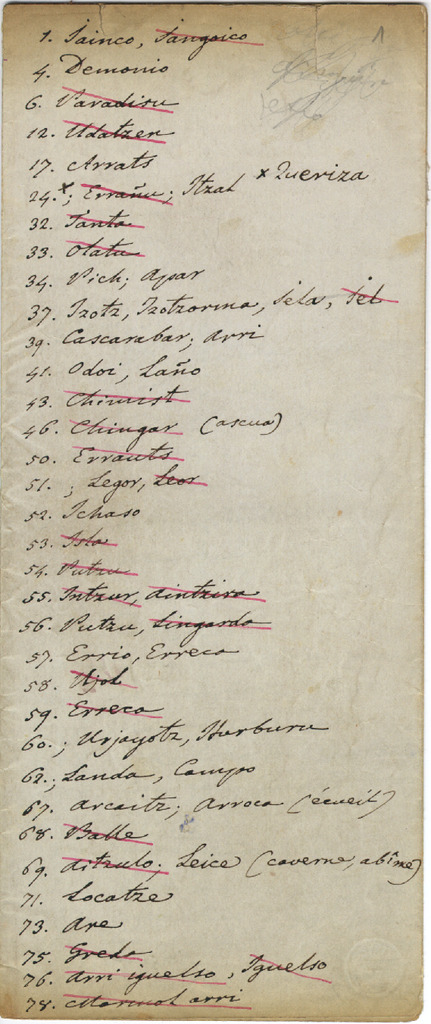 1
1. Jainco, Jangoico
4. Demonio
6. Paradisu
12. Udatzen
17. Arrats
24. x; Errañu; Itzal x Queriza
32. Tanta
33. Olatu
34. Pich; Apar
37. Izotz, Izotzorma, Sela, Sel
39. Cascarabar; Arri
41. Odoi, Laño
43. Chimist
46. Chingar (ascua)
50. Errauts
51. ; Legor, Leor
52. Ichaso
53. Isla
54. Putzu
55. Intzur, Aintzira
56. Putzu, Lingarda
57. Errio, Erreca
58. Ujol
59. Erreca
60. ; Urjayotz, Iturburu
62. ; Landa, Campo
67. Arcaitz; Arroca (écueil)
68. Balle
69. Aitzulo; Leice (caverne, abîme)
71. Locatze
73. Are
75. Greda
76. Arri iguelso, Iguelso
78. Marmol arri